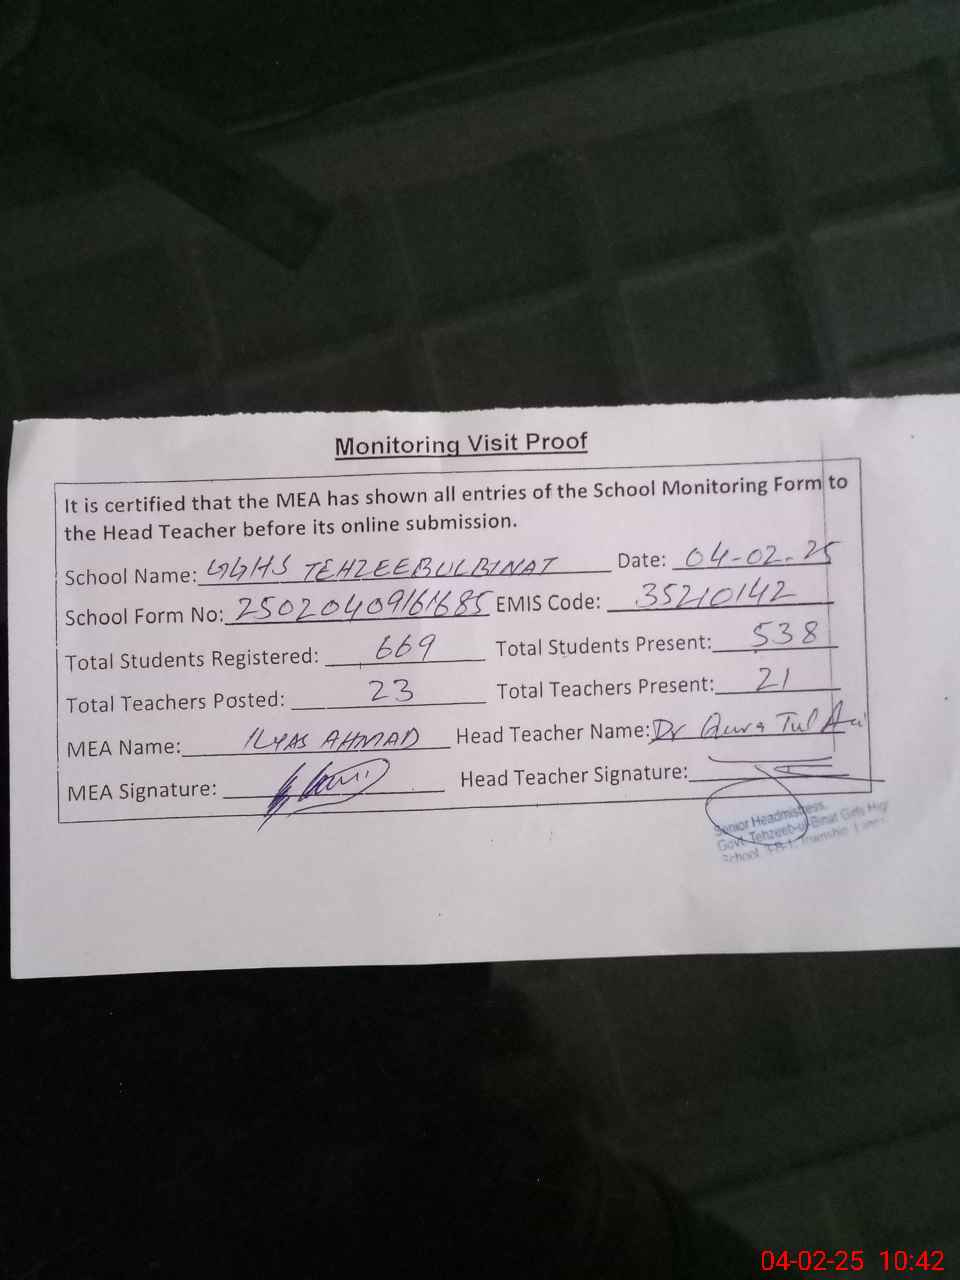 Monitoring Visit Proof
It is certified that the MEA has shown all entries of the School Monitoring Form to
the Head Teacher before its online submission.
School Name: GGHS TEHZEEBULBINAT Date: 04-02-25
School Form No: 25020409161685 EMIS Code: 35210142
Total Students Registered: 669 Total Students Present: 538
Total Teachers Posted: 23 Total Teachers Present: 21
MEA Name: ILYAS AHMAD Head Teacher Name: Dr Qura Tul
MEA Signature: Head Teacher Signature:
Senior Headmistress,
Govt. Tehzeeb-ul-Binat Girls High
School, Township
04-02-25 10:42